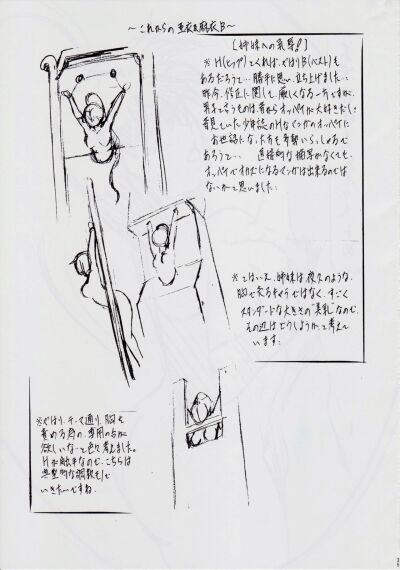 ～これからの亜衣&麻衣B～
[姉妹への気導!]
※H(ヒップ)でくれば、やはりB(バスト)も
あるだろうて…勝手に思い、立ち上げました…
昨今、修正に関して、厳しくなる一方ですが、
男子て言うものは、昔からオッパイが大好きだし
昔見ていた少年誌のHなマンガのオッパイに
お世話になった方も多勢いらっしゃるで
あろうて… 直接的な描写がなくても、
オッパイでオカズになるマンガは出来るのでは
ないかて思いました。
※とはいえ、姉妹は夜久のような、
胸で売るキャラではなく、すごく
スタンダードな大きさの"美乳"なので、
その辺はどうしようかて考えて
います。
※やはり、テーマ通り、胸を
責める為の、専用の台が
欲しいなて色々考えました。
Hが触手なので、こちらは
典型的な調教モノで
いきたいですね。